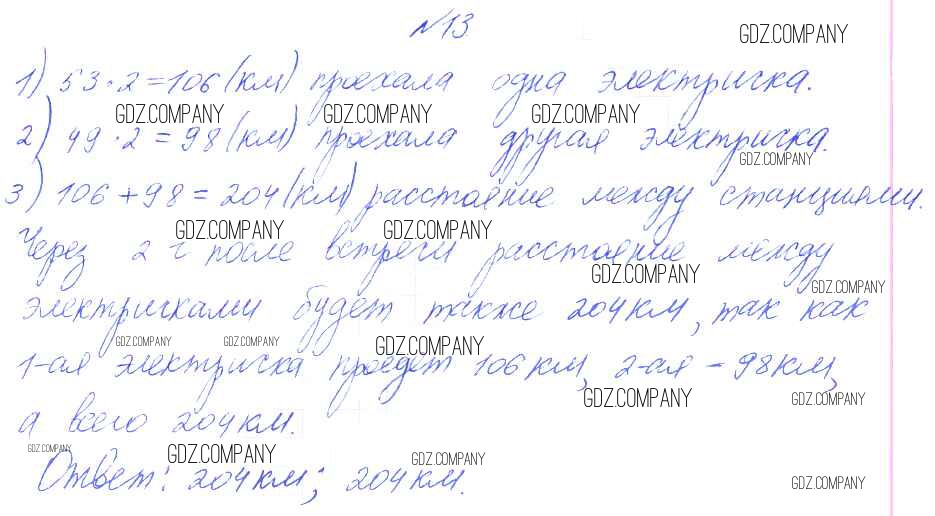 №13.
GDZ.COMPANY
1) 53·2=106(км) проехала одна электричка.
GDZ.COMPANY GDZ.COMPANY GDZ.COMPANY
2) 49·2=98(км) проехала другая электричка.
GDZ.COMPANY
3) 106+98=204(км) расстояние между станциями.
GDZ.COMPANY GDZ.COMPANY
Через 2 ч после встречи расстояние между
GDZ.COMPANY GDZ.COMPANY
электричками будет также 204км, так как
GDZ.COMPANY GDZ.COMPANY GDZ.COMPANY
1-ая электричка проедет 106км, 2-ая – 98км,
GDZ.COMPANY GDZ.COMPANY
а всего 204км.
GDZ.COMPANY GDZ.COMPANY GDZ.COMPANY
Ответ: 204км; 204км.
GDZ.COMPANY